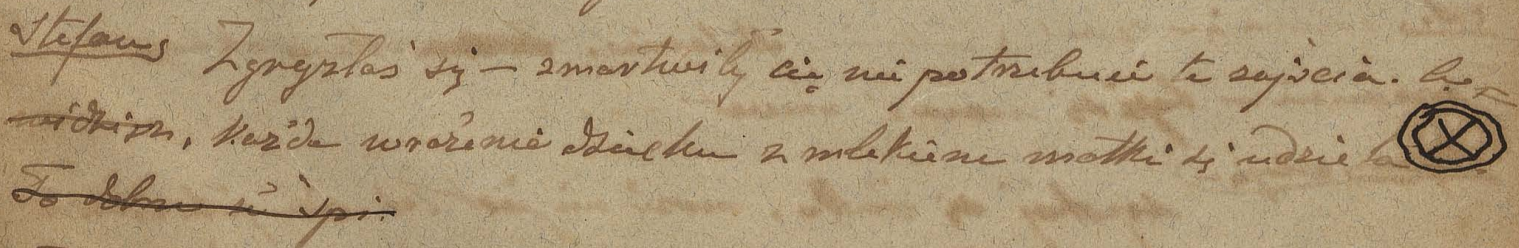 Stefans Zgryzłaś się — zmartwiły cię nie potrzebnie te zajścia.
widzisz, każde wrażenie dziecku z mlekiem matki się udziela
To dobrze że śpi.